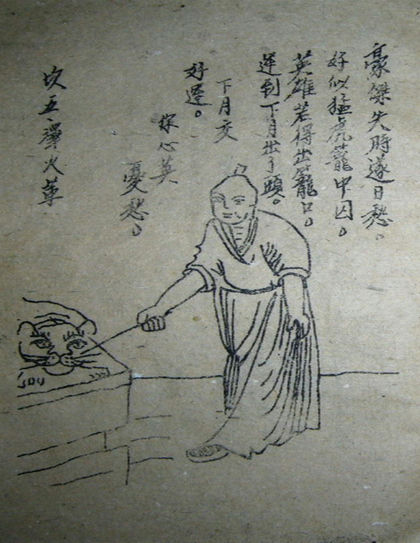 豪傑失時遂日愁。
好似猛虎蘢中囚。
英雄若得出籠口。
運到下月出了頭。
下月交
好運。
你心莫
憂愁。
坎五 澤火革